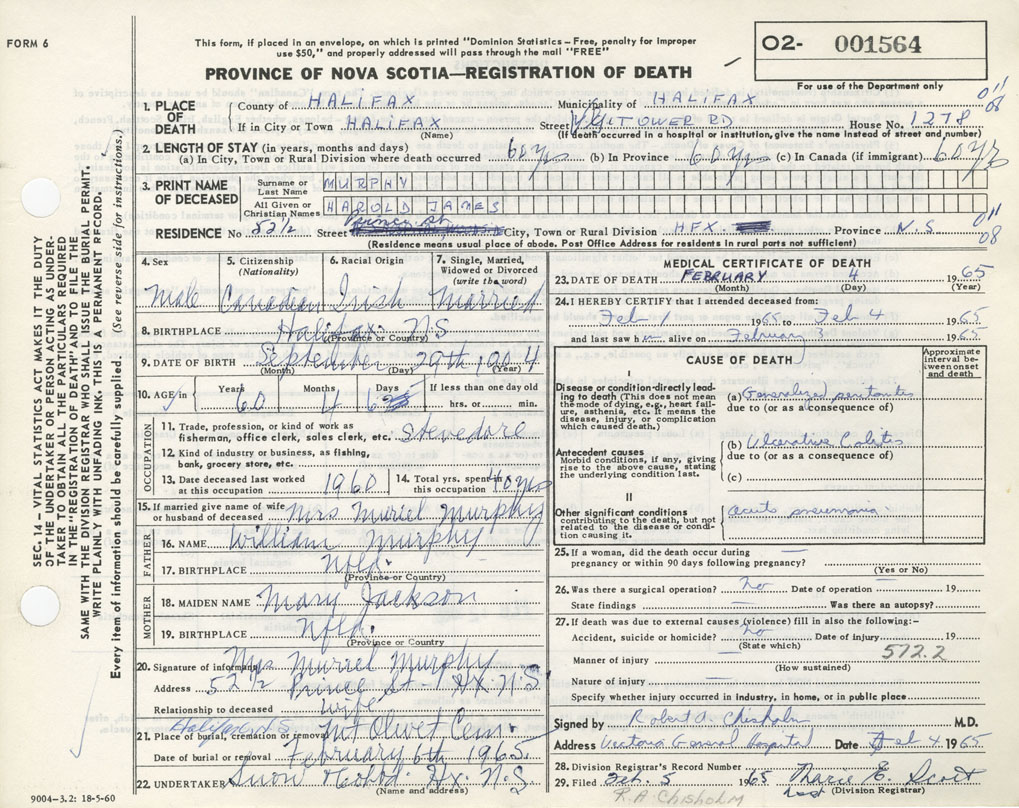 FORM 6
This form, if placed in an envelope, on which is printed "Dominion Statistics – Free, penalty for improper
use $50," and properly addressed will pass through the mail "FREE"
PROVINCE OF NOVA SCOTIA—REGISTRATION OF DEATH
02- 001564
For use of the Department only
1. PLACE OF DEATH
County of HALIFAX Municipality of HALIFAX
If in City or Town HALIFAX Street TOWER RD House No. 1278
(Name) (If death occurred in a hospital or institution, give the name instead of street and number)
011
08
2. LENGTH OF STAY (in years, months and days)
(a) In City, Town or Rural Division where death occurred 60 yrs (b) In Province 60 yrs (c) In Canada (if immigrant) 60 yrs
3. PRINT NAME OF DECEASED
Surname or Last Name MURPHY
All Given or Christian Names HAROLD JAMES
RESIDENCE No. 52½ Street Prince St. City, Town or Rural Division HFX. Province N.S
(Residence means usual place of abode. Post Office Address for residents in rural parts not sufficient)
011
08
SEC. 14 – VITAL STATISTICS ACT MAKES IT THE DUTY
OF THE UNDERTAKER OR PERSON ACTING AS UNDER-
TAKER TO OBTAIN ALL THE PARTICULARS REQUIRED
IN THE "REGISTRATION OF DEATH" AND TO FILE THE
SAME WITH THE DIVISION REGISTRAR WHO SHALL ISSUE THE BURIAL PERMIT.
WRITE PLAINLY WITH UNFADING INK. THIS IS A PERMANENT RECORD.
Every item of information should be carefully supplied. (See reverse side for instructions.)
4. Sex 5. Citizenship (Nationality) 6. Racial Origin 7. Single, Married, Widowed or Divorced (write the word)
Male Canadian Irish Married
8. BIRTHPLACE Halifax N S
(Province or Country)
9. DATE OF BIRTH September 29th 1904
(Month) (Day) (Year)
10. AGE in Years 60 Months 4 Days 6 If less than one day old hrs. or min.
OCCUPATION
11. Trade, profession, or kind of work as
fisherman, office clerk, sales clerk, etc. Stevedore
12. Kind of industry or business, as fishing,
bank, grocery store, etc.
13. Date deceased last worked at this occupation 1960
14. Total yrs. spent in this occupation 40 yrs
15. If married give name of wife or husband of deceased Mrs Muriel Murphy
FATHER
16. NAME William Murphy
17. BIRTHPLACE Nfld.
(Province or Country)
MOTHER
18. MAIDEN NAME Mary Jackson
19. BIRTHPLACE Nfld.
(Province or Country
20. Signature of informant Mrs Muriel Murphy
Address 52½ Prince St - Hx. N.S
Relationship to deceased wife
21. Place of burial, cremation or removal Halifax N S. Mt Olivet Cem.
Date of burial or removal February 6th 1965
22. UNDERTAKER Snow Hx. N.S
(Name and address)
9004–3.2: 18-5-60
MEDICAL CERTIFICATE OF DEATH
23. DATE OF DEATH FEBRUARY 4 1965
(Month) (Day) (Year)
24. I HEREBY CERTIFY that I attended deceased from:
Feb 1 1965 to Feb 4 1965
and last saw him alive on February 3 1965
CAUSE OF DEATH
Approximate interval be-
tween onset and death
I
Disease or condition directly lead-
ing to death (This does not mean
the mode of dying, e.g., heart fail-
ure, asthenia, etc. It means the
disease, injury, or complication
which caused death.)
(a) Generalized peritonitis
due to (or as a consequence of)
Antecedent causes
Morbid conditions, if any, giving
rise to the above cause, stating
the underlying condition last.
(b) Ulcerative Colitis
due to (or as a consequence of)
(c)
II
Other significant conditions
contributing to the death, but not
related to the disease or condi-
tion causing it.
acute pneumonia
25. If a woman, did the death occur during
pregnancy or within 90 days following pregnancy? —
(Yes or No)
26. Was there a surgical operation? no Date of operation — 19
State findings — Was there an autopsy?
27. If death was due to external causes (violence) fill in also the following:–
Accident, suicide or homicide? no Date of injury 19
(State which)
572.2
Manner of injury —
(How sustained)
Nature of injury —
Specify whether injury occurred in industry, in home, or in public place
Signed by Robert A. Chisholm M.D.
Address Victoria General Hospital Date Feb 4 1965
28. Division Registrar's Record Number
29. Filed Feb. 5 1965 Marie E. Scott
(Division Registrar)
R.A. CHISHOLM